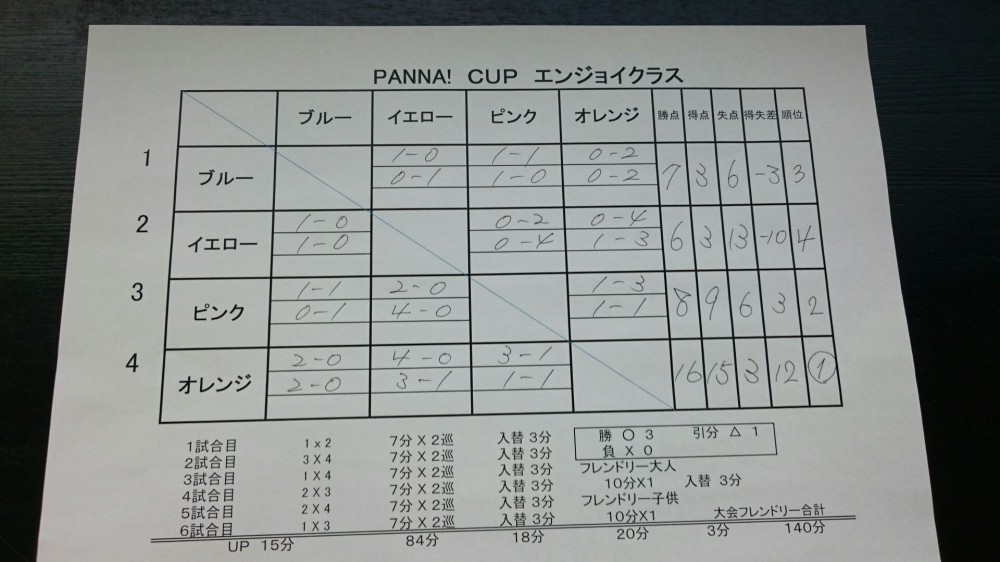 PANNA! CUP エンジョイクラス
ブルー イエロー ピンク オレンジ 勝点 得点 失点 得失差 順位
1 ブルー 1-0 1-1 0-2 7 3 6 -3 3
0-1 1-0 0-2
2 イエロー 1-0 0-2 0-4 6 3 13 -10 4
1-0 0-4 1-3
3 ピンク 1-1 2-0 1-3 8 9 6 3 2
0-1 4-0 1-1
4 オレンジ 2-0 4-0 3-1 16 15 3 12 1
2-0 3-1 1-1
1試合目 1x2 7分X2巡 入替3分 勝 ○ 3 引分 △ 1
負 X 0
2試合目 3X4 7分X2巡 入替3分 フレンドリー大人
3試合目 1X4 7分X2巡 入替3分 10分X1 入替 3分
4試合目 2X3 7分X2巡 入替3分 フレンドリー子供
5試合目 2X4 7分X2巡 入替3分 10分X1 大会フレンドリー合計
6試合目 1X3 7分X2巡 入替3分
UP 15分 84分 18分 20分 3分 140分